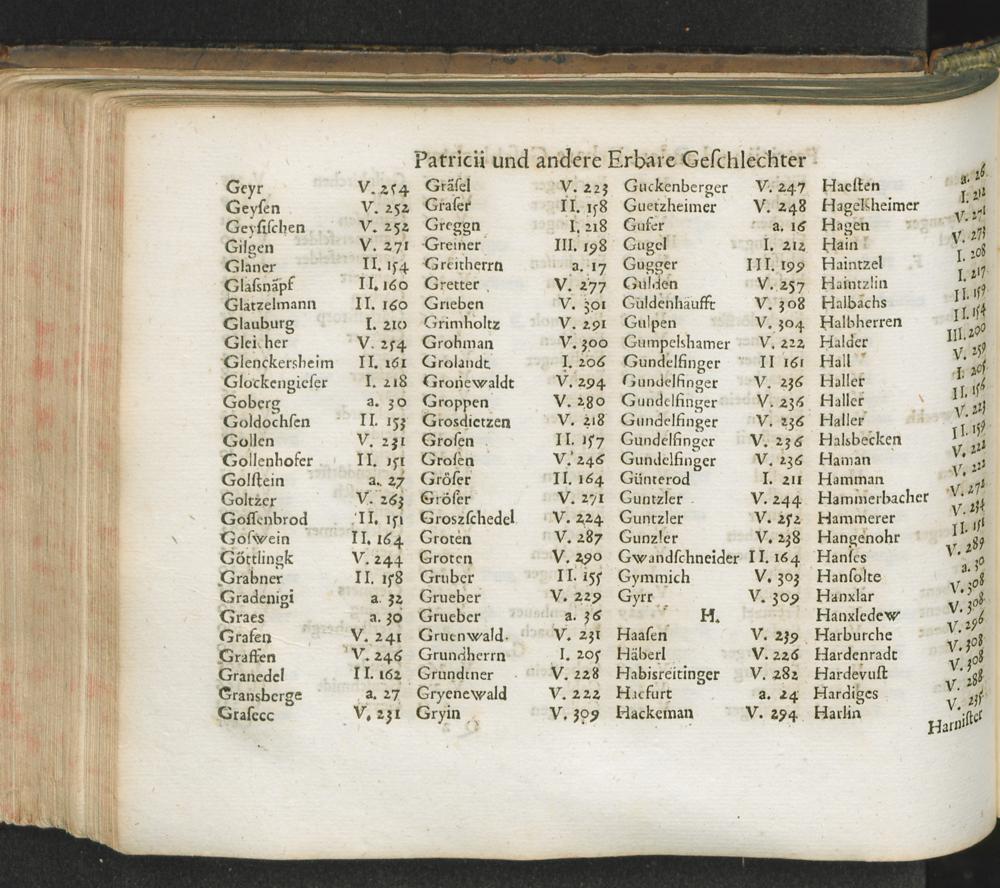 Patricii und andere Erbare Geſchlechter
Geyr V. 254
Geyſen V. 252
Geyſiſchen V. 252
Gilgen V. 271
Glaner II. 154
Glaſsnäpf II. 160
Glatzelmann II. 160
Glauburg I. 210
Gleicher V. 254
Glenckersheim II. 161
Glockengieſer I. 218
Goberg a. 30
Goldochſen II. 153
Gollen V. 231
Gollenhofer II. 151
Golſtein a. 27
Goltzer V. 263
Goſſenbrod II. 151
Goſwein II. 164
Göttlingk V. 244
Grabner II. 158
Gradenigi a. 32
Graes a. 30
Graſen V. 241
Graffen V. 246
Granedel II. 162
Gransberge a. 27
Graſecc V. 231
Gräſel V. 223
Graſer II. 158
Greggn I. 218
Greiner III. 198
Greitherrn a. 17
Gretter V. 277
Grieben V. 301
Grimholtz V. 291
Grohman V. 300
Grolandt I. 206
Gronewaldt V. 294
Groppen V. 280
Grosdietzen V. 218
Groſen II. 157
Groſen V. 246
Gröſer II. 164
Gröſer V. 271
Groszſchedel V. 224
Groten V. 287
Groten V. 290
Gruber II. 155
Grueber V. 229
Grueber a. 36
Gruenwald. V. 231
Grundherrn I. 205
Grundtner V. 228
Gryenewald V. 222
Gryin V. 309
Guckenberger V. 247
Guetzheimer V. 248
Gufer a. 16
Gugel I. 212
Gugger III. 199
Gulden V. 257
Güldenhäufft V. 308
Gulpen V. 304
Gumpelshamer V. 222
Gundelfinger II 161
Gundelfinger V. 236
Gundelfinger V. 236
Gundelfinger V. 236
Gundelfinger V. 236
Gundelfinger V. 236
Günterod I. 211
Guntzler V. 244
Guntzler V. 252
Gunzler V. 238
Gwandſchneider II. 164
Gymmich V. 303
Gyrr V. 309
H.
Haaſen V. 239
Häberl V. 226
Habisreitinger V. 282
Haefurt a. 24
Hackeman V. 294
Haeſten a. 26
Hagelſheimer I. 212
Hagen V. 271
Hain V. 273
Haintzel I. 208
Haintzlin I. 217
Halbachs II. 159
Halbherren II. 154
Halder III. 200
Hall V. 259
Haller I. 205
Haller II. 156
Haller V. 223
Halsbecken II. 159
Haman V. 222
Hamman V. 222
Hammerbacher V. 272
Hammerer V. 234
Hangenohr II. 151
Hanſes V. 289
Hanſolte a. 30
Hanxlar V. 308
Hanxledew V. 308
Harburche V. 296
Hardenradt V. 308
Hardevuſt V. 308
Hardiges V. 288
Harlin V. 235
Harniſter